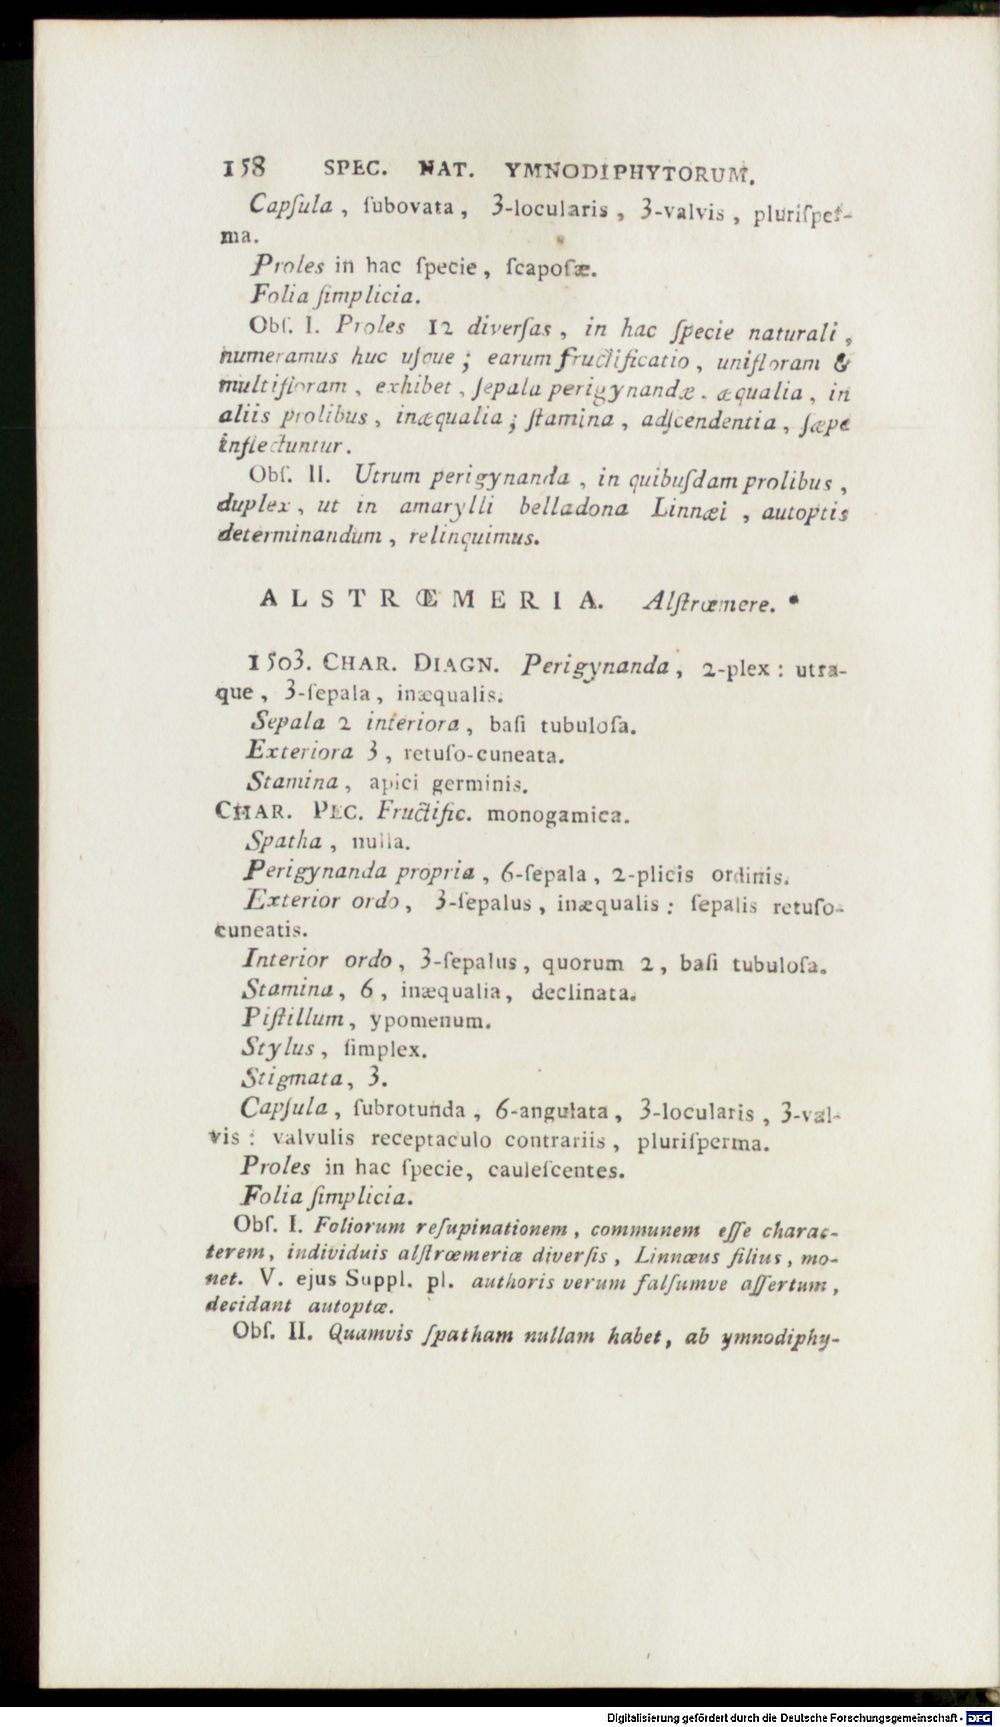 158 SPEC. NAT. YMNODIPHYTORUM.
Capſula, ſubovata, 3-locularis, 3-valvis, pluriſper-
ma.
Proles in hac ſpecie, ſcapoſæ.
Folia ſimplicia.
Obſ. I. Proles 12 diverſas, in hac ſpecie naturali,
numeramus huc uſque; earum fructificatio, unifloram &
multifloram, exhibet, ſepala perigynandæ. æqualia, in
aliis prolibus, inæqualia; ſtamina, adſcendentia, ſæpe
inflectuntur.
Obſ. II. Utrum perigynanda, in quibuſdam prolibus,
duplex, ut in amarylli belladona Linnæi, autoptis
determinandum, relinquimus.
ALSTRŒMERIA. Alſtrœmere. *
1503. CHAR. DIAGN. Perigynanda, 2-plex: utra-
que, 3-ſepala, inæqualis.
Sepala 2 interiora, baſi tubuloſa.
Exteriora 3, retuſo-cuneata.
Stamina, apici germinis.
CHAR. PEC. Fructific. monogamica.
Spatha, nulla.
Perigynanda propria, 6-ſepala, 2-plicis ordinis.
Exterior ordo, 3-ſepalus, inæqualis: ſepalis retuſo-
cuneatis.
Interior ordo, 3-ſepalus, quorum 2, baſi tubuloſa.
Stamina, 6, inæqualia, declinata.
Piſtillum, ypomenum.
Stylus, ſimplex.
Stigmata, 3.
Capſula, ſubrotunda, 6-angulata, 3-locularis, 3-val-
vis: valvulis receptaculo contrariis, pluriſperma.
Proles in hac ſpecie, cauleſcentes.
Folia ſimplicia.
Obſ. I. Foliorum reſupinationem, communem eſſe charac-
terem, individuis alſtrœmeriæ diverſis, Linnœus filius, mo-
net. V. ejus Suppl. pl. authoris verum falſumve aſſertum,
decidant autoptœ.
Obſ. II. Quamvis ſpatham nullam habet, ab ymnodiphy-
Digitalisierung gefördert durch die Deutsche Forschungsgemeinschaft - DFG